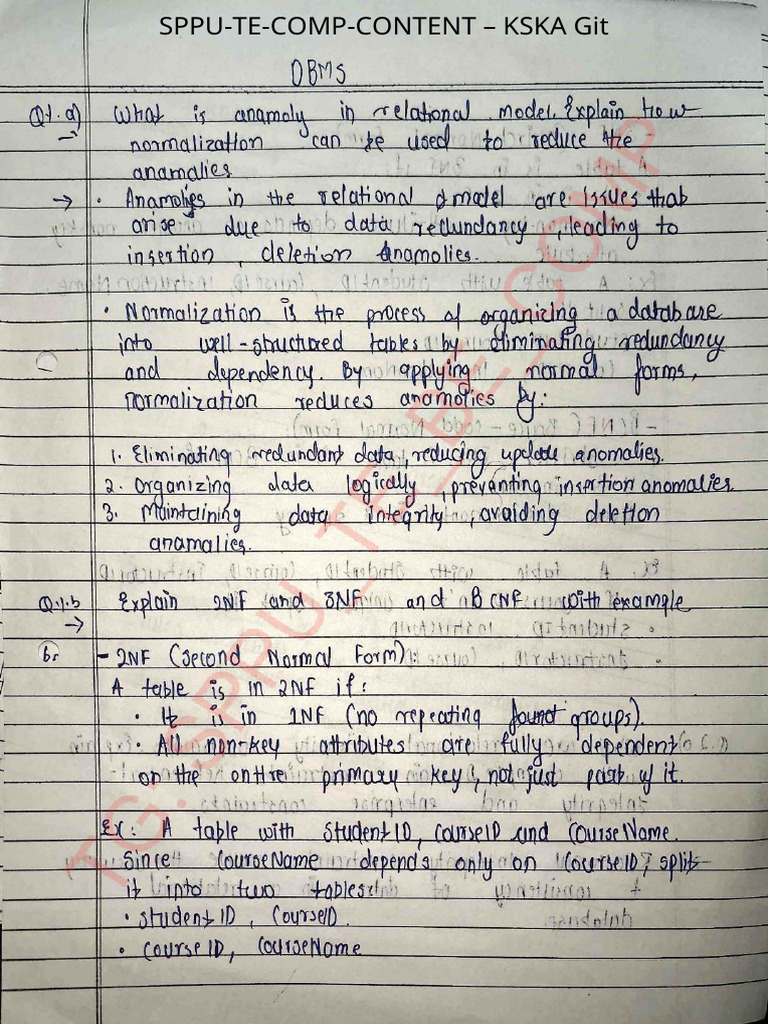 SPPU-TE-COMP-CONTENT – KSKA Git
DBMS
Q1. a) What is anamoly in relational model. Explain how
normalization can be used to reduce the
anamalies.
→ • Anamolies in the relational model are issues that
arise due to data redundancy, leading to
insertion, deletion Anamolies.
• Normalization is the process of organizing a database
into well-structured tables by eliminating redundancy
and dependency. By applying normal forms,
normalization reduces anamolies by:
1. Eliminating redundant data, reducing update anomalies.
2. Organizing data logically, prevanting insertion anomalies.
3. Maintaining data integrity, avoiding deletion
anamalies.
Q.1.b Explain 2NF and 3NF and BCNF with example
→
b. - 2NF (Second Normal Form):
A table is in 2NF if:
• It is in 1NF (no repeating groups).
• All non-key attributes are fully dependent
on the entire primary key, not just part of it.
Ex: A table with StudentID, CourseID and CourseName.
Since CourseName depends only on CourseID, split
it into two tables:
• StudentID, CourseID.
• CourseID, CourseName
TG: SPPU_TE_BE_COMP